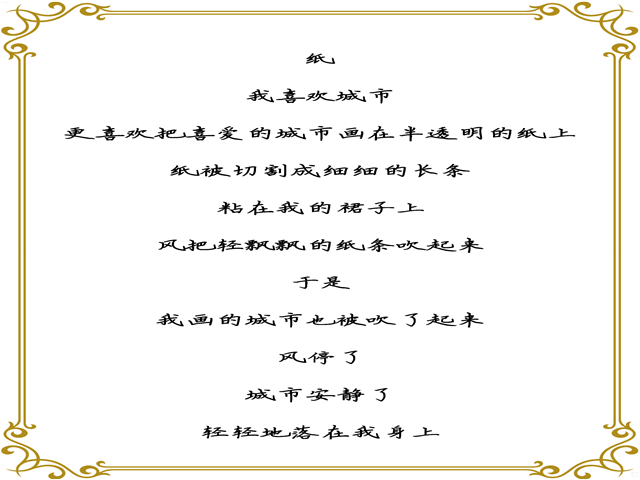 纸
我喜欢城市
更喜欢把喜爱的城市画在半透明的纸上
纸被切割成细细的长条
粘在我的裙子上
风把轻飘飘的纸条吹起来
于是
我画的城市也被吹了起来
风停了
城市安静了
轻轻地落在我身上